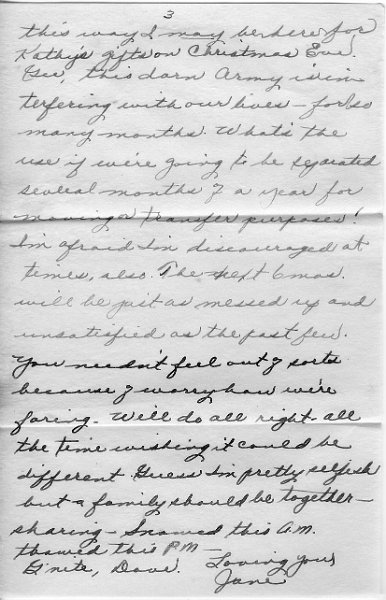 3
this way I may be here for
Kathy's gifts on Christmas Eve.
Gee, this darn Army is in
terfering with our lives - for so
many months. What's the
use if we're going to be separated
several months of a year for
moving or transfer purposes!
I'm afraid I'm discouraged at
times, also. The next 6 mos.
will be just as messed up and
unsatisfied as the past few.
You needn't feel out of sorts
because of worry how we're
faring. We'll do all right - all
the time wishing it could be
different. Guess I'm pretty selfish
but a family should be together -
sharing - Snowed this A.M.
thawed this P.M. -
G'nite, Dave. Loving you,
Jane